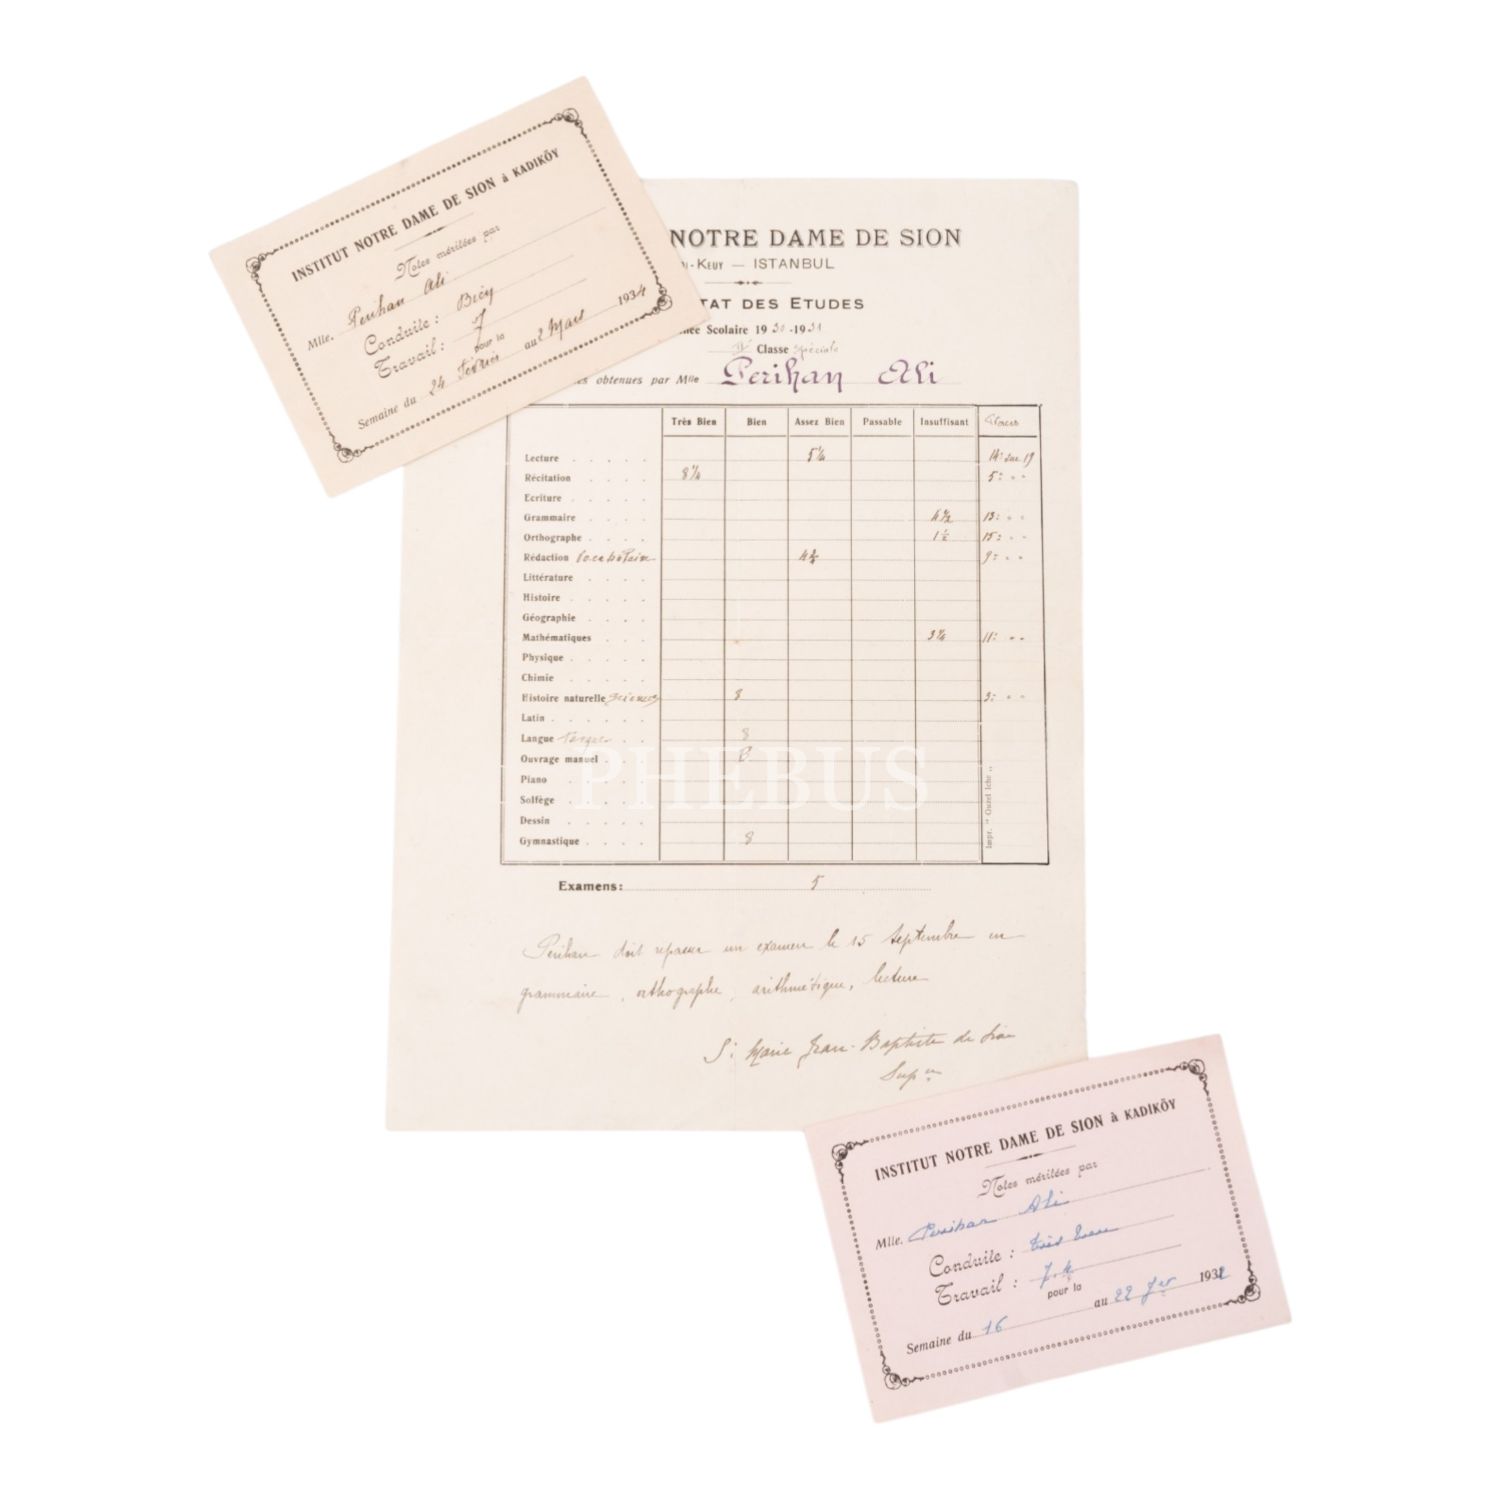 INSTITUT NOTRE DAME DE SION à KADIKÖY
Notes méritées par
Mlle. Perihan Ali
Conduite : Bien
Travail : 7
pour la
Semaine du 24 février au 2 Mars 1934
NOTRE DAME DE SION
-KEUY — ISTANBUL
TAT DES ETUDES
née Scolaire 1930-1931
Classe spéciale
es obtenues par Mlle Perihan Ali
Très Bien Bien Assez Bien Passable Insuffisant Places
Lecture 5 ¼ 14e sur 19
Récitation 8 ¼ 5e " "
Ecriture
Grammaire 13e " "
Orthographe 1 ½ 15e " "
Rédaction Vocabulaire 9e " "
Littérature
Histoire
Géographie
Mathématiques 11e " "
Physique
Chimie
Histoire naturelle Sciences 8 3e " "
Latin
Langue turque 8
Ouvrage manuel 8
Piano
Solfège
Dessin
Gymnastique 8
Impr. "
Examens: 5
Perihan doit repasser un examen le 15 Septembre en
grammaire, orthographe, arithmétique, lecture
Sr Marie Jean-Baptiste de Sion
Supre
INSTITUT NOTRE DAME DE SION à KADİKÖY
Notes méritées par
Mlle. Perihan Ali
Conduite : très bien
Travail :
pour la
Semaine du 16 au 22 fev 1932
PHEBUS